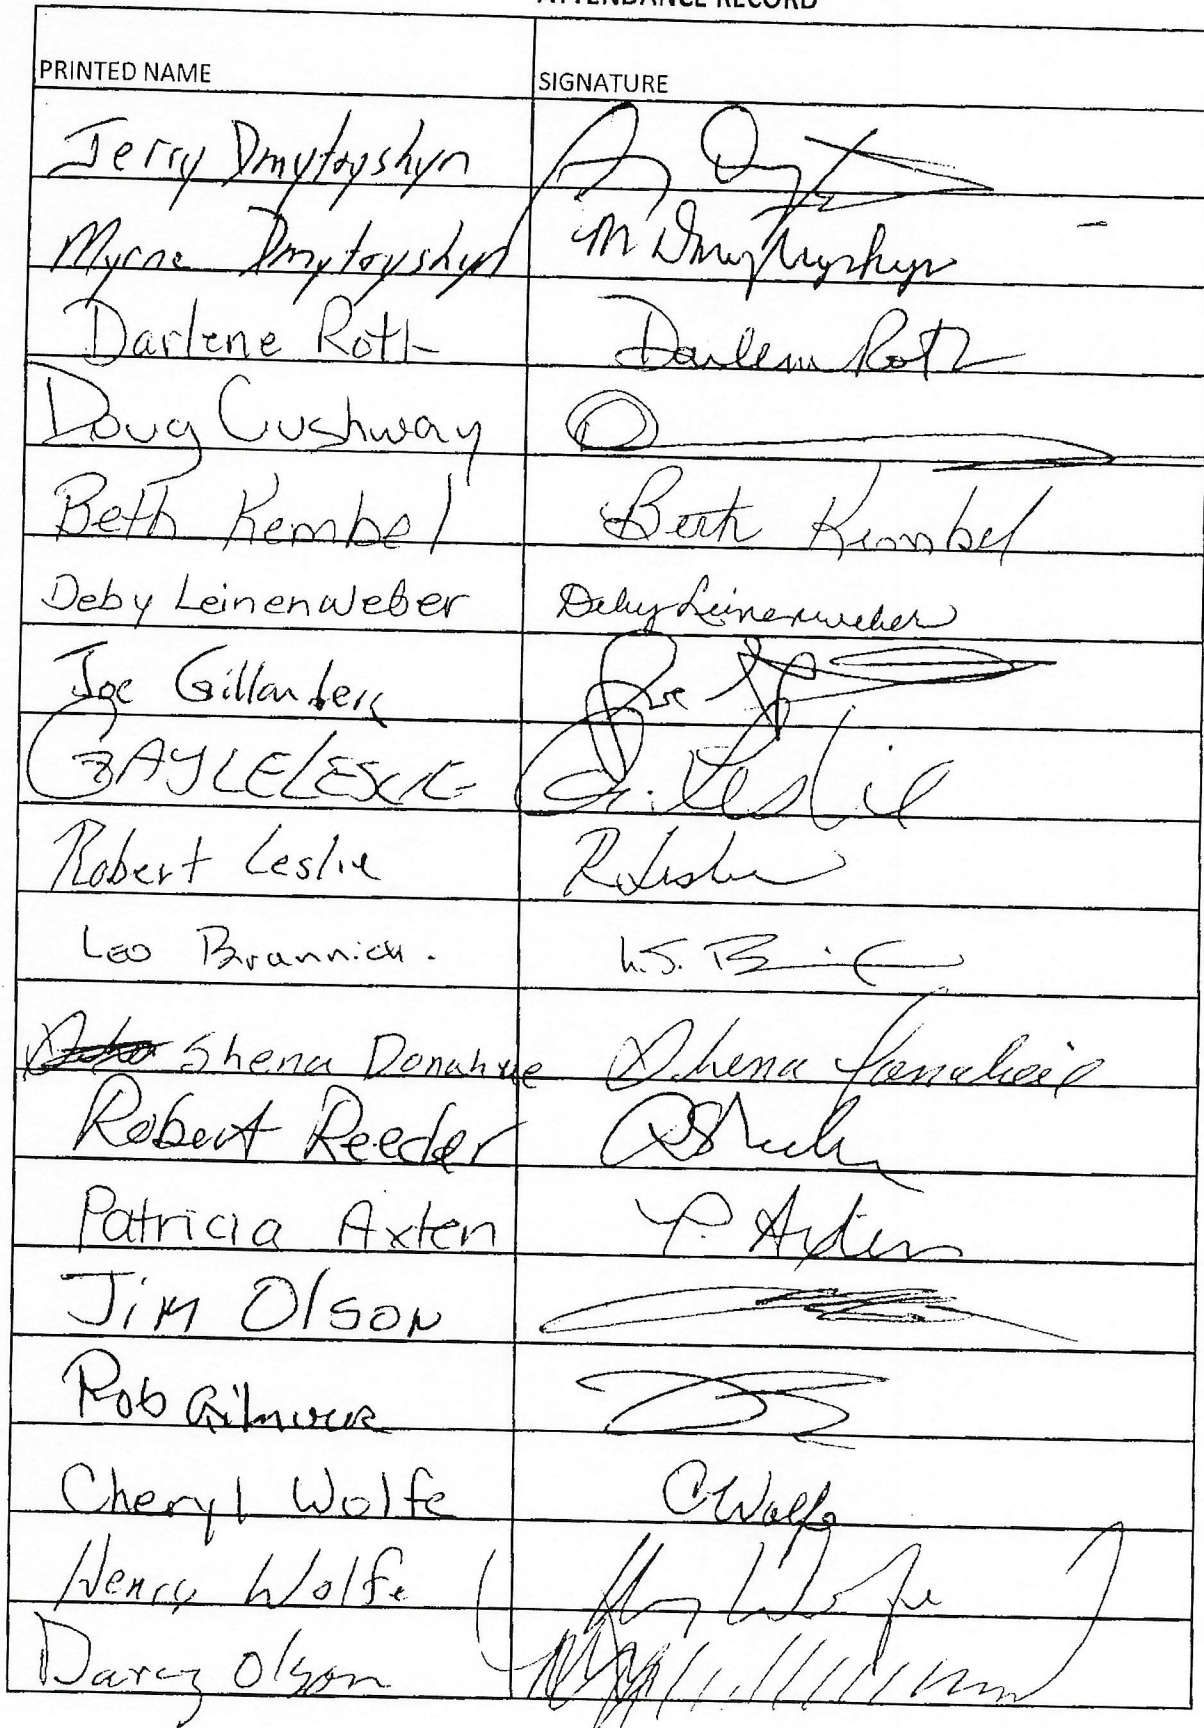 ATTENDANCE RECORD
PRINTED NAME SIGNATURE
Jerry Dmytryshyn
Myrna Dmytryshyn M Dmytryshyn
Darlene Roth Darlene Roth
Doug Cushway
Beth Kembel Beth Kembel
Deby Leinenweber Deby Leinenweber
Joe Gillanberg Joe
GAYLE LESLIE G. Leslie
Robert Leslie R. Leslie
Leo Brannick. L.S.
Shena Donahue Shena Donahue
Robert Reeder
Patricia Axten P. Axten
Jim Olson
Rob Gilmour
Cheryl Wolfe C Wolfe
Henry Wolfe Henry Wolfe
Darcy Olson